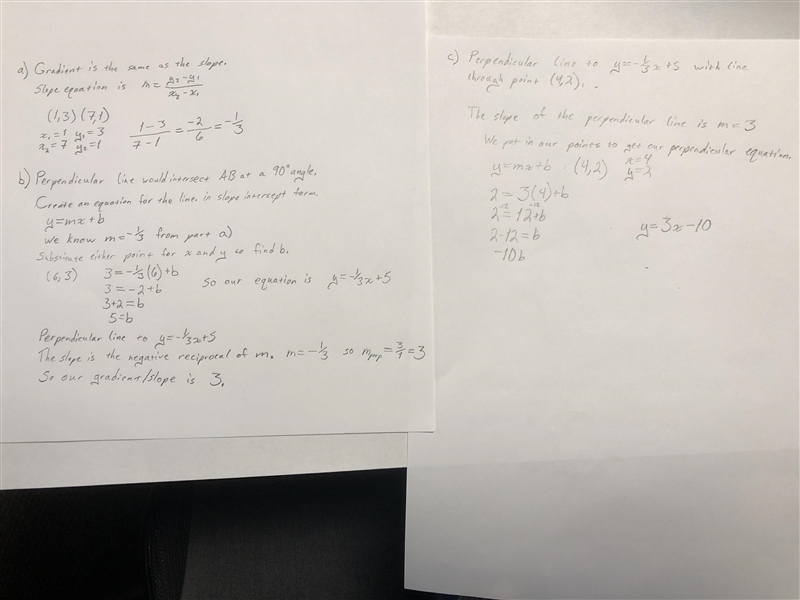 a) Gradient is the same as the slope.
Slope equation is m = y₂-y₁/x₂-x₁
(1,3) (7,1)
x₁=1 y₁=3
x₂=7 y₂=1
1-3/7-1 = -2/6 = -1/3
b) Perpendicular line would intersect AB at a 90° angle.
Create an equation for the line. in slope intercept form.
y=mx+b
We know m=-1/3 from part a)
Substitute either point for x and y to find b.
(6,3) 3=-1/3(6)+b
3 = -2+b
3+2=b
5=b
So our equation is y=-1/3x+5
Perpendicular line to y=-1/3x+5
The slope is the negative reciprocal of m. m=-1/3 so mperp=3/1=3
So our gradient/slope is 3.
c) Perpendicular line to y=-1/3x+5 with line
through point (4,2).
The slope of the perpendicular line is m=3
We put in our points to get our perpendicular equation.
y=mx+b : (4,2) x=4
y=2
2=3(4)+b
2-12=12-12+b
2-12=b
-10b
y=3x-10